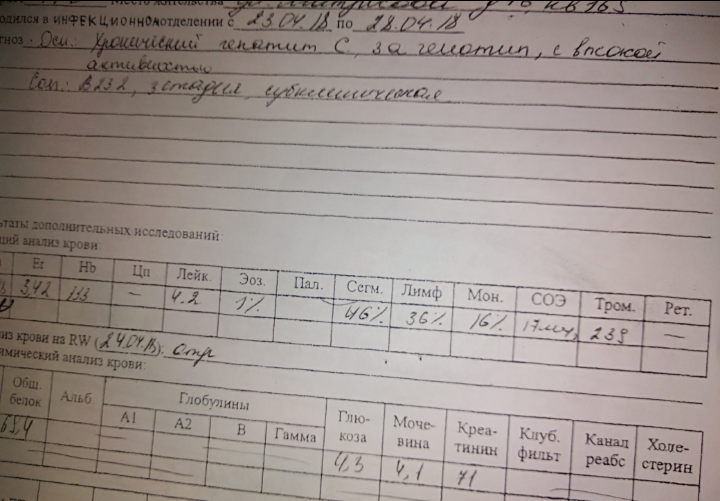 Место жительства кв 165
одился в ИНФЕКЦИОННОМ отделении с 23.04.18 по 28.04.18
гноз. Осн.: Хронический гепатит С, 3а генотип, с высокой
активностью
Соп.: В23.2, 3 стадия, субклиническая
льтаты дополнительных исследований:
щий анализ крови:
Er Hb Цп Лейк. Эоз. Пал. Сегм. Лимф Мон. СОЭ Тром. Рет.
3,42 133 — 4.2 1% 46% 36% 16% 17мм/ч 239 —
из крови на RW (24.04.18): отр
имический анализ крови:
Общ. белок Альб Глобулины Глю-коза Моче-вина Креа-тинин Клуб. фильт Канал реабс Холе-стерин
А1 А2 В Гамма
65,4 4,3 4,1 71